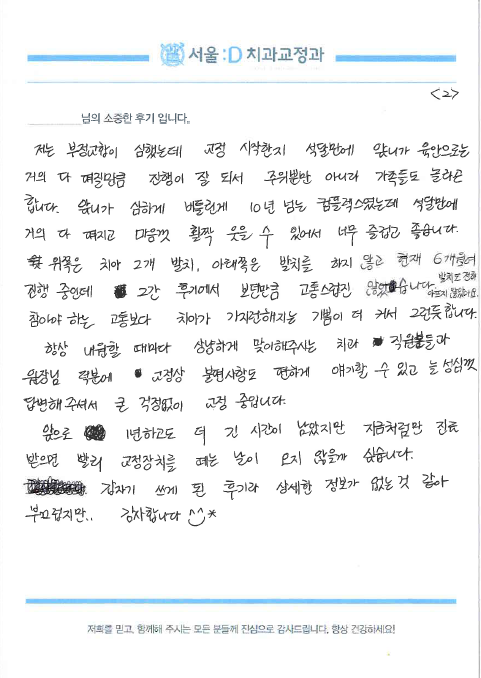 서울:D 치과교정과
<2>
님의 소중한 후기 입니다.
저는 부정교합이 심했는데 교정 시작한지 석달만에 앞니가 육안으로는
거의 다 펴질만큼 진행이 잘 되서 주위분만 아니라 가족들도 놀라곤
합니다. 앞니가 심하게 비틀린게 10년 넘는 컴플렉스였는데 석달만에
거의 다 펴지고 마음껏 활짝 웃을 수 있어서 너무 즐겁고 좋습니다.
위쪽은 치아 2개 발치, 아래쪽은 발치를 하지 않고 현재 6개월째
진행 중인데 그간 후기에서 보던만큼 고통스럽진 않았습니다.
발치도 전혀
아프지 않았어요.
참아야 하는 고통보다 치아가 가지런해지는 기쁨이 더 커서 그런듯 합니다.
항상 내원할 때마다 상냥하게 맞이해주시는 치과 직원분들과
원장님 덕분에 교정상 불편사항도 편하게 얘기할 수 있고 늘 성심껏
답변해 주셔서 큰 걱정없이 교정 중입니다.
앞으로 1년하고도 더 긴 시간이 남았지만 지금처럼만 진료
받으면 빨리 교정장치를 떼는 날이 오지 않을까 싶습니다.
갑자기 쓰게 된 후기라 상세한 정보가 없는 것 같아
부끄럽지만.. 감사합니다 ^^*
저희를 믿고, 함께해 주시는 모든 분들께 진심으로 감사드립니다. 항상 건강하세요!